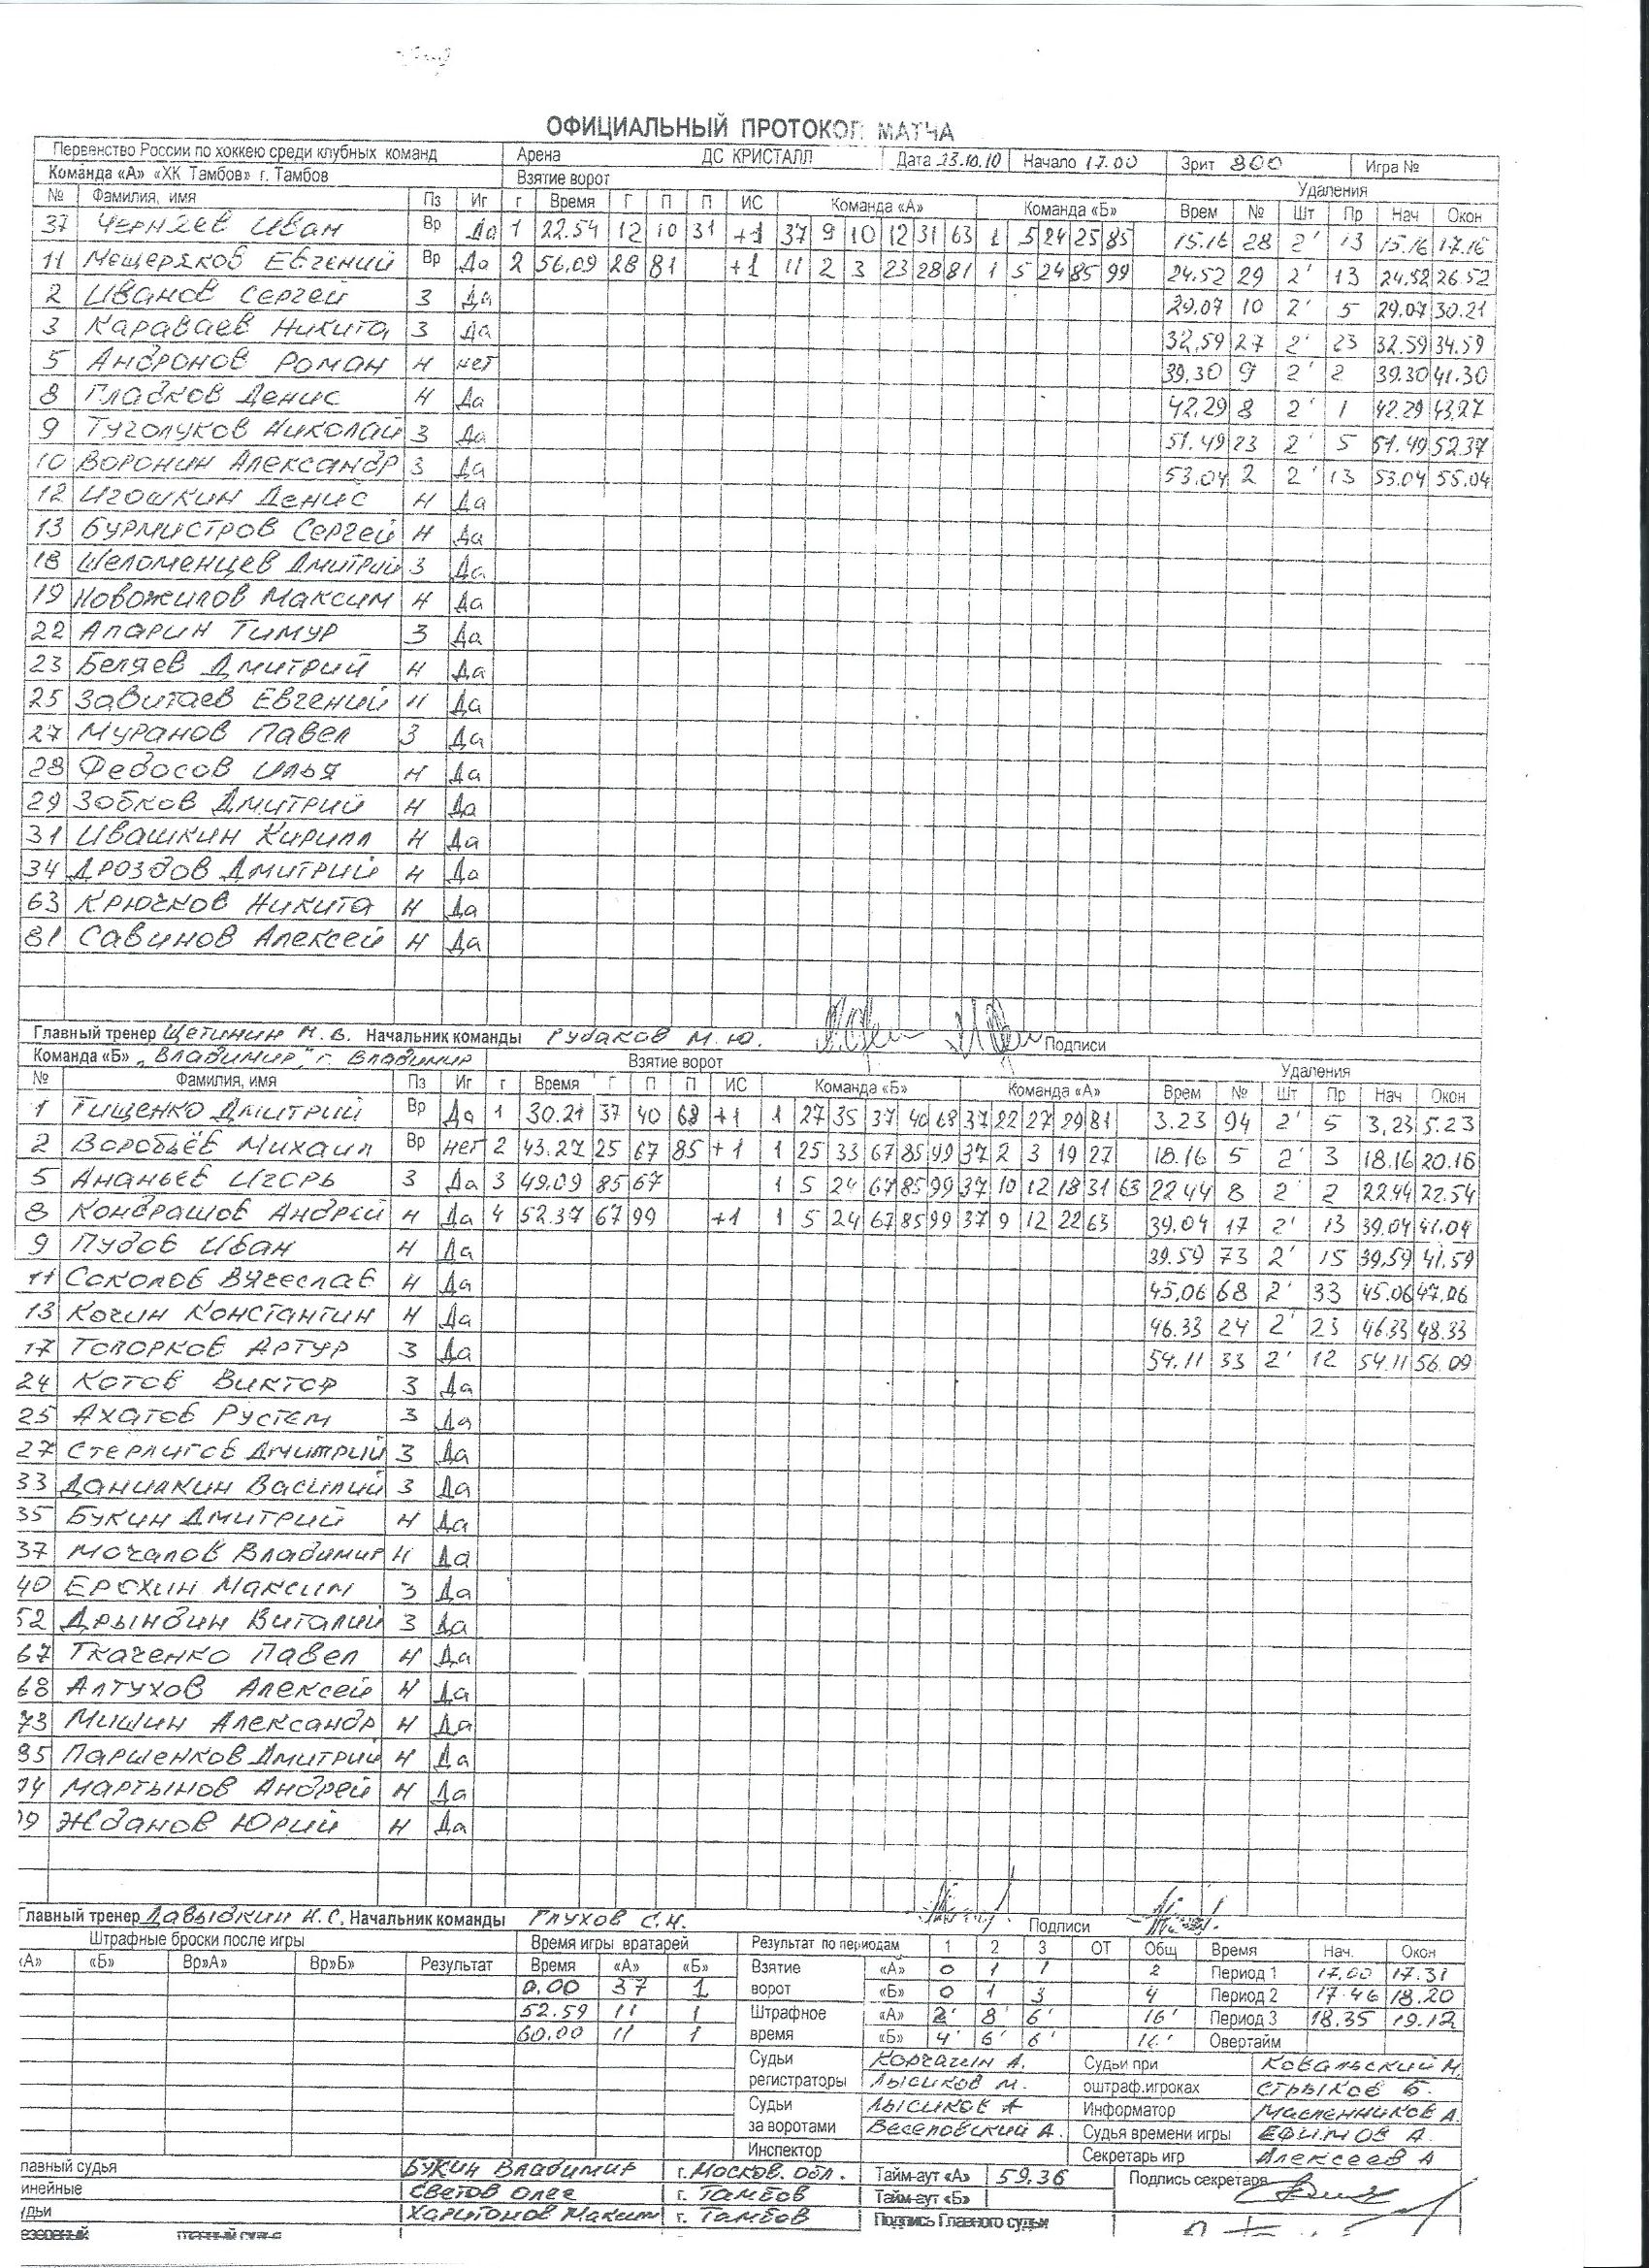 ОФИЦИАЛЬНЫЙ ПРОТОКОЛ МАТЧА
Первенство России по хоккею среди клубных команд Арена ДС КРИСТАЛЛ Дата 23.10.10 Начало 17.00 Зрит 800 Игра №
Команда «А» «ХК Тамбов» г. Тамбов Взятие ворот Удаления
№ Фамилия, имя Пз Иг г Время Г П П ИС Команда «А» Команда «Б» Врем № Шт Пр Нач Окон
37 Черняев Иван Вр Да 1 22.54 12 10 31 +1 37 9 10 12 31 63 1 5 24 25 85 15.16 28 2' 13 15.16 17.16
11 Мещеряков Евгений Вр Да 2 56.09 28 81 +1 11 2 3 23 28 81 1 5 24 85 99 24.52 29 2' 13 24.52 26.52
2 Иванов Сергей З Да 29.07 10 2' 5 29.07 30.21
3 Караваев Никита З Да 32.59 27 2' 23 32.59 34.59
5 Андронов Роман Н нет 39.30 9 2' 2 39.30 41.30
8 Гладков Денис Н Да 42.29 8 2' 1 42.29 43.27
9 Туголуков Николай З Да 51.49 23 2' 5 51.49 52.37
10 Воронин Александр З Да 53.04 2 2' 13 53.04 55.04
12 Игошкин Денис Н Да
13 Бурмистров Сергей Н Да
18 Шеломенцев Дмитрий З Да
19 Новожилов Максим Н Да
22 Апарин Тимур З Да
23 Беляев Дмитрий Н Да
25 Завитаев Евгений Н Да
27 Муранов Павел З Да
28 Федосов Илья Н Да
29 Зобков Дмитрий Н Да
31 Ивашкин Кирилл Н Да
34 Дроздов Дмитрий Н Да
63 Крючков Никита Н Да
81 Савинов Алексей Н Да
Главный тренер Щетинин М.В. Начальник команды Рудаков М.Ю. Подписи
Команда «Б» „Владимир" г. Владимир Взятие ворот Удаления
№ Фамилия, имя Пз Иг г Время Г П П ИС Команда «Б» Команда «А» Врем № Шт Пр Нач Окон
1 Тищенко Дмитрий Вр Да 1 30.21 37 40 68 +1 1 27 35 37 40 68 37 22 27 29 81 3.23 94 2' 5 3.23 5.23
2 Воробьёв Михаил Вр нет 2 43.27 25 67 85 +1 1 25 33 67 85 99 37 2 3 19 27 18.16 5 2' 3 18.16 20.16
5 Ананьев Игорь З Да 3 49.09 85 67 1 5 24 67 85 99 37 10 12 18 31 63 22.44 8 2' 2 22.44 22.54
8 Кондрашов Андрей Н Да 4 52.37 67 99 +1 1 5 24 67 85 99 37 9 12 22 63 39.04 17 2' 13 39.04 41.04
9 Пудов Иван Н Да 39.59 73 2' 15 39.59 41.59
11 Соколов Вячеслав Н Да 45.06 68 2' 33 45.06 47.06
13 Кочин Константин Н Да 46.33 24 2' 23 46.33 48.33
17 Топорков Артур З Да 54.11 33 2' 12 54.11 56.09
24 Котов Виктор З Да
25 Ахатов Рустем З Да
27 Стерлигов Дмитрий З Да
33 Данилкин Василий З Да
35 Букин Дмитрий Н Да
37 Мочалов Владимир Н Да
40 Ерохин Максим З Да
52 Дрындин Виталий З Да
67 Ткаченко Павел Н Да
68 Алтухов Алексей Н Да
73 Мишин Александр Н Да
85 Паршенков Дмитрий Н Да
94 Мартынов Андрей Н Да
99 Жданов Юрий Н Да
Главный тренер Давыдкин Н.С. Начальник команды Глухов С.Н. Подписи
Штрафные броски после игры Время игры вратарей Результат по периодам 1 2 3 ОТ Общ Время Нач. Окон
«А» «Б» Вр»А» Вр»Б» Результат Время «А» «Б» Взятие «А» 0 1 1 2 Период 1 17.00 17.31
0.00 37 1 ворот «Б» 0 1 3 4 Период 2 17.46 18.20
52.59 11 1 Штрафное «А» 2' 8' 6' 16' Период 3 18.35 19.12
60.00 11 1 время «Б» 4' 6' 6' 16' Овертайм
Судьи Корчагин А. Судьи при Ковальский М.
регистраторы Лысиков М. оштраф.игроках Стрыков Б.
Судьи Лысиков А Информатор Масленников А.
за воротами Веселовский А. Судья времени игры Ефимов А.
Инспектор Секретарь игр Алексеев А
лавный судья Букин Владимир г. Москов. обл. Тайм-аут «А» 59.36 Подпись секретаря
инейные Светов Олег г. Тамбов Тайм-аут «Б»
удьи Харитонов Максим г. Тамбов Подпись Главного судьи